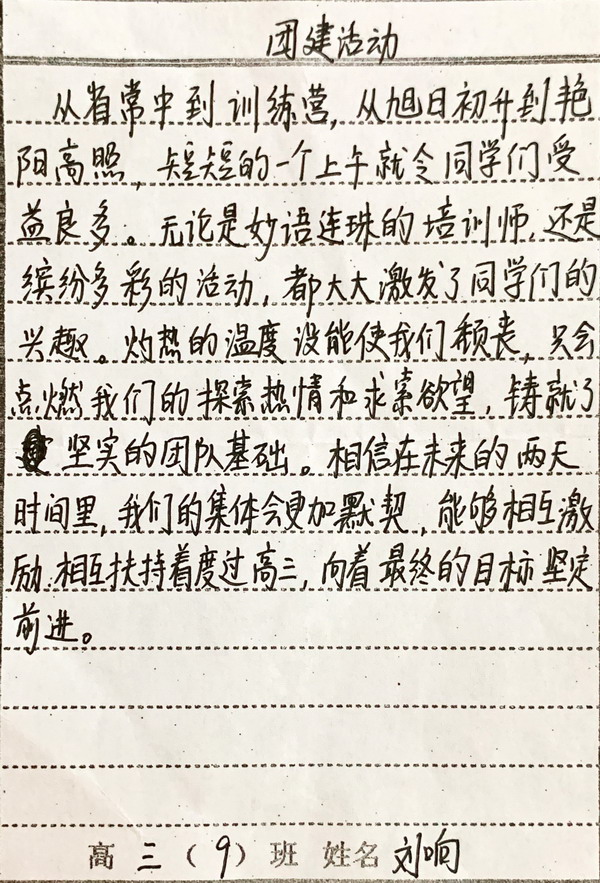 团建活动
从省常中到训练营，从旭日初升到艳
阳高照，短短的一个上午就令同学们受
益良多。无论是妙语连珠的培训师，还是
缤纷多彩的活动，都大大激发了同学们的
兴趣。灼热的温度没能使我们颓丧，只会
点燃我们的探索热情和求索欲望，铸就了
坚实的团队基础。相信在未来的两天
时间里，我们的集体会更加默契，能够相互激
励，相互扶持着度过高三，向着最终的目标坚定
前进。
高三（9）班 姓名 刘响